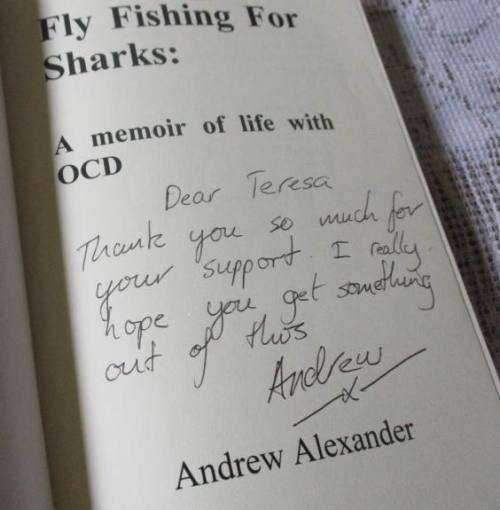 Fly Fishing For
Sharks:
A memoir of life with
OCD
Dear Teresa
Thank you so much for
your support. I really
hope you get something
out of this
Andrew
x
Andrew Alexander